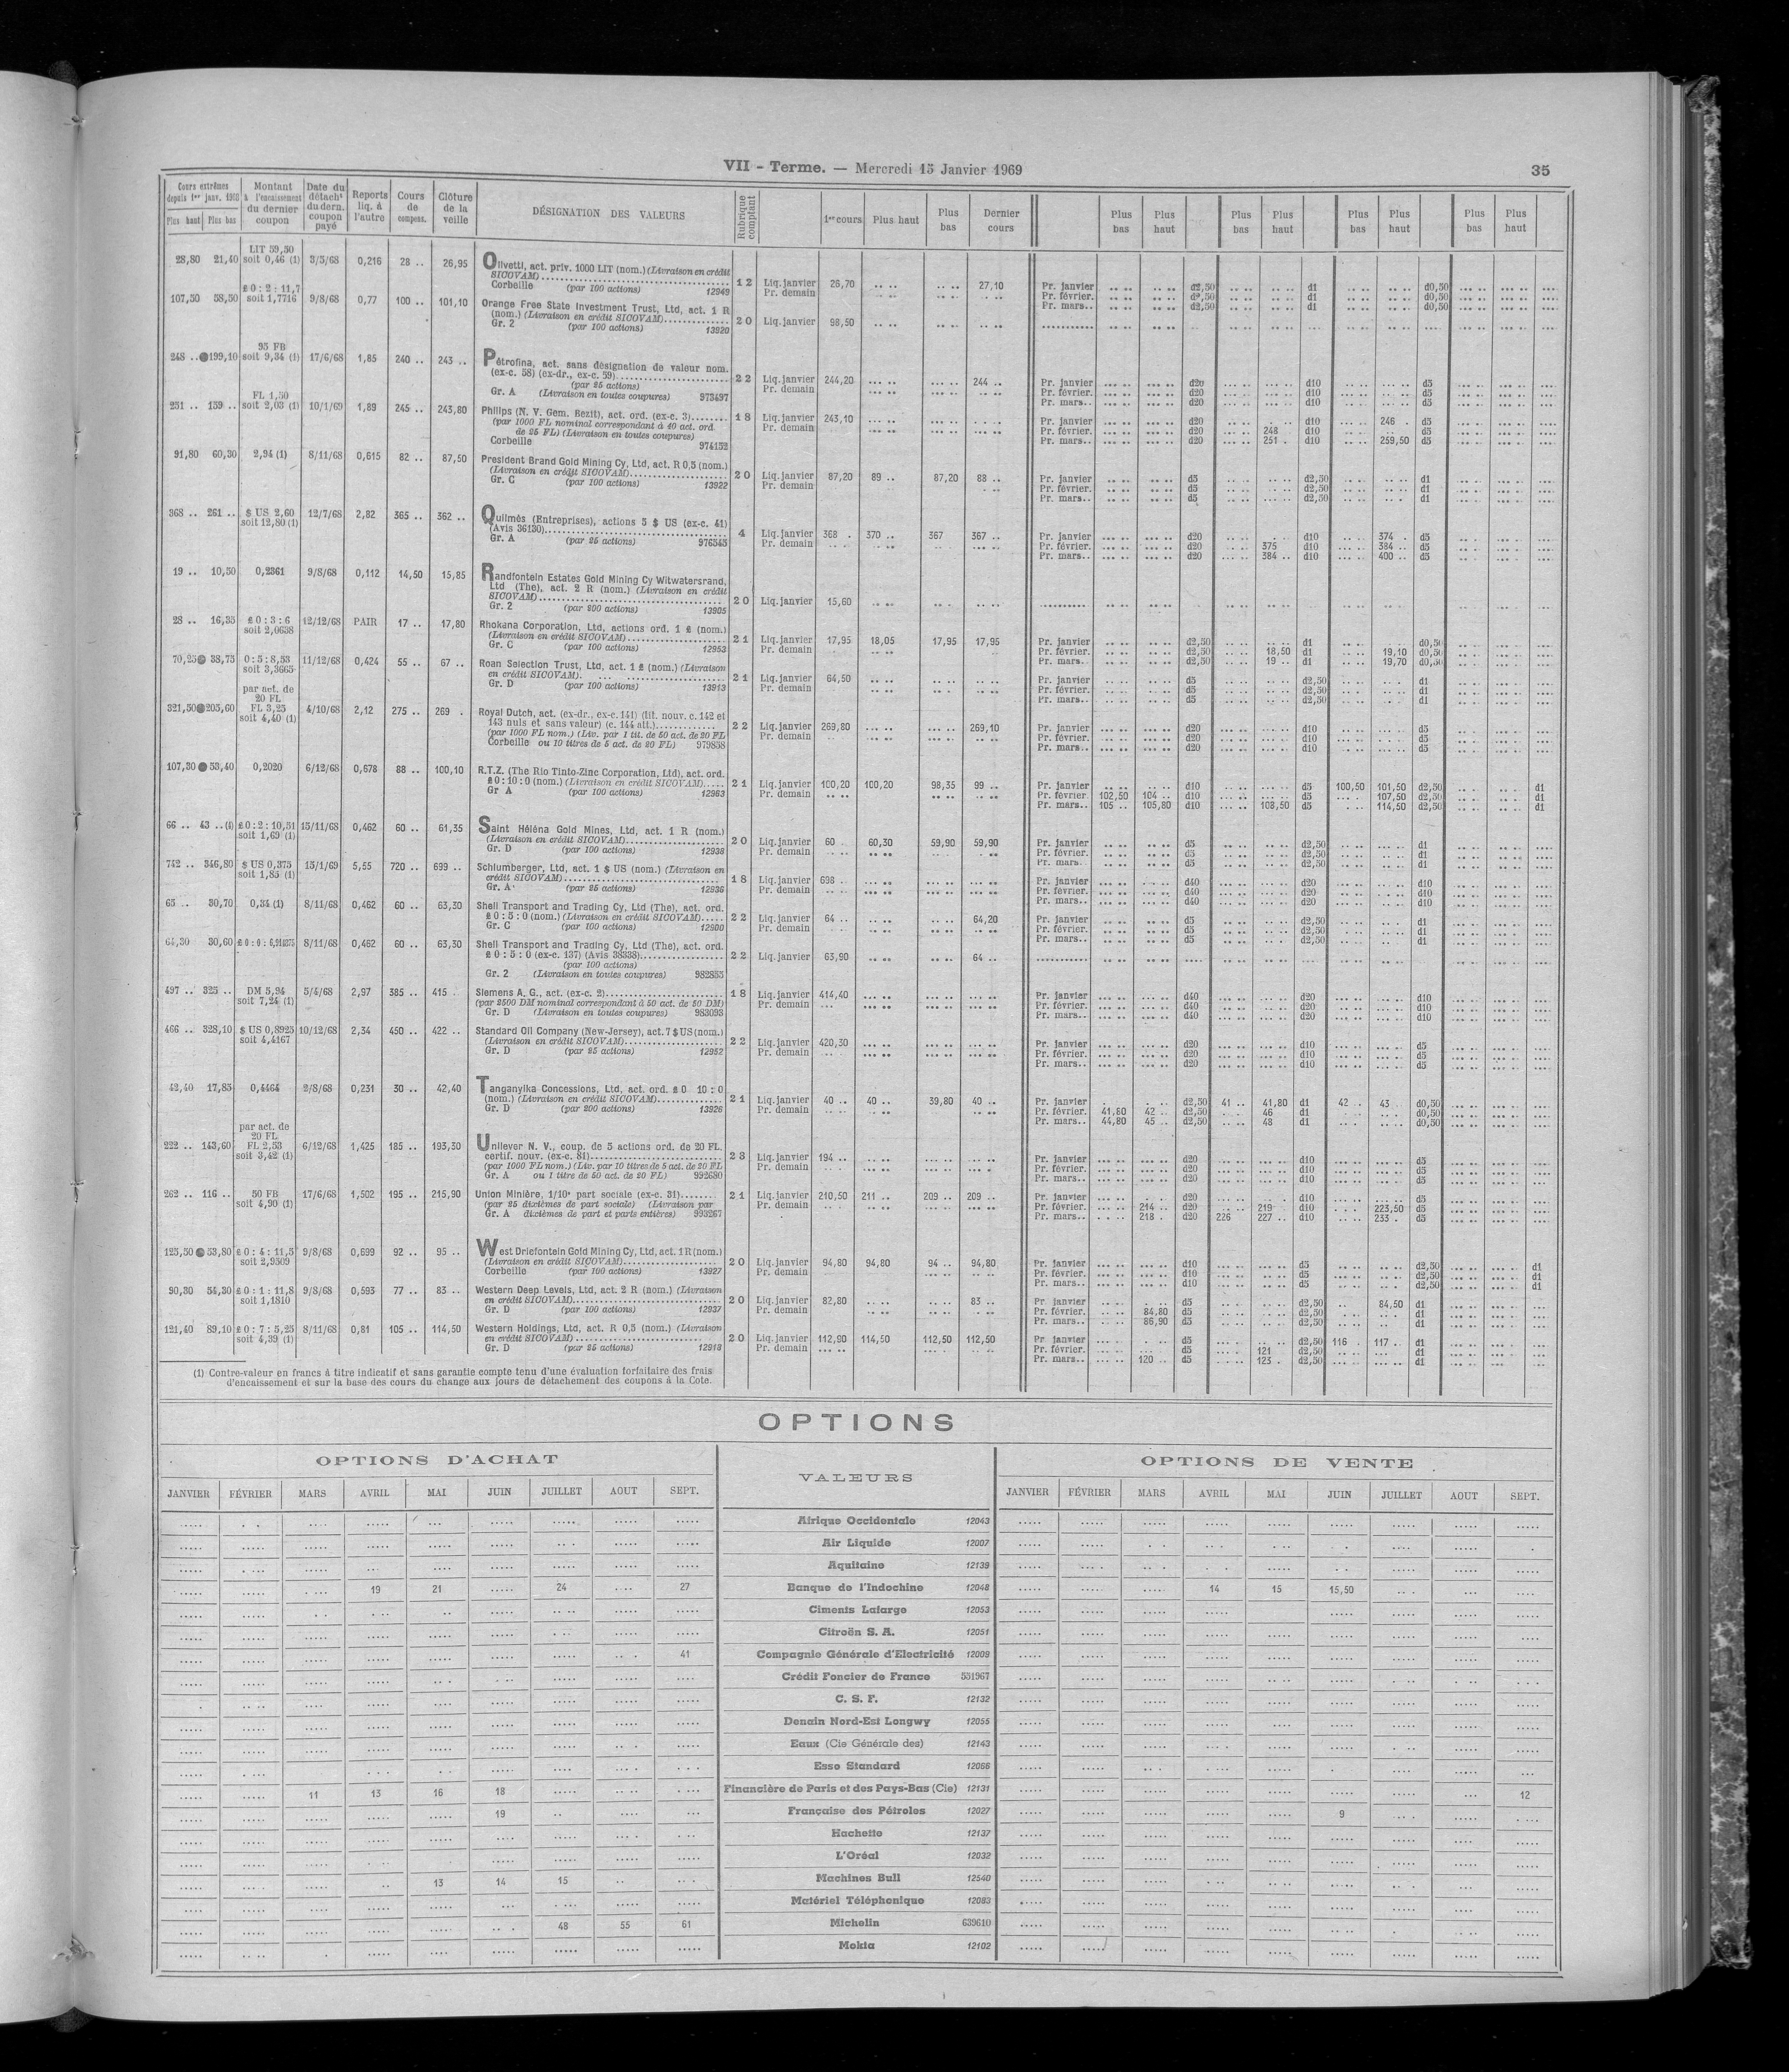 VII - Terme. — Mercredi 15 Janvier 1969 35
Cours extrêmes depuis 1er janv. 1968 Plus haut Plus bas Montant à l'encaissement du dernier coupon Date du détacht du dern. coupon payé Reports liq. à l'autre Cours de compens. Clôture de la veille DÉSIGNATION DES VALEURS Rubrique comptant 1er cours Plus haut Plus bas Dernier cours Plus bas Plus haut Plus bas Plus haut Plus bas Plus haut Plus bas Plus haut
LIT 59,50
28,80 21,40 soit 0,46 (1) 3/5/68 0,216 28 .. 26,95 Olivetti, act. priv. 1000 LIT (nom.) (Livraison en crédit
SICOVAM)
Corbeille (par 100 actions) 12949 12 Liq. janvier 26,70 27,10 Pr. janvier d2,50 d1 d0,50
Pr. demain Pr. février. d2,50 d1 d0,50
Pr. mars.. d2,50 d1 d0,50
£ 0 : 2 : 11,7
107,50 58,50 soit 1,7716 9/8/68 0,77 100 .. 101,10 Orange Free State Investment Trust, Ltd, act. 1 R
(nom.) (Livraison en crédit SICOVAM)
Gr. 2 (par 100 actions) 13920 20 Liq. janvier 98,50
95 FB
248 .. 199,10 soit 9,34 (1) 17/6/68 1,85 240 .. 243 .. Pétrofina, act. sans désignation de valeur nom.
(ex-c. 58) (ex-dr., ex-c. 59)
(par 25 actions)
Gr. A (Livraison en toutes coupures) 973497 22 Liq. janvier 244,20 244 .. Pr. janvier d20 d10 d5
Pr. demain Pr. février. d20 d10 d5
Pr. mars.. d20 d10 d5
FL 1,50
251 .. 159 .. soit 2,03 (1) 10/1/69 1,89 245 .. 243,80 Philips (N. V. Gem. Bezit), act. ord. (ex-c. 3)
(par 1000 FL nominal correspondant à 40 act. ord.
de 25 FL) (Livraison en toutes coupures)
Corbeille 974152 18 Liq. janvier 243,10 Pr. janvier d20 d10 246 . d5
Pr. demain Pr. février. d20 248 d10 d5
Pr. mars.. d20 251 . d10 259,50 d5
91,80 60,30 2,94 (1) 8/11/68 0,615 82 .. 87,50 President Brand Gold Mining Cy, Ltd, act. R 0,5 (nom.)
(Livraison en crédit SICOVAM)
Gr. C (par 100 actions) 13922 20 Liq. janvier 87,20 89 .. 87,20 88 .. Pr. janvier d5 d2,50 d1
Pr. demain Pr. février. d5 d2,50 d1
Pr. mars.. d5 d2,50 d1
368 .. 261 .. $ US 2,60 12/7/68 2,82 365 .. 362 .. Quilmès (Entreprises), actions 5 $ US (ex-c. 41)
soit 12,80 (1) (Avis 36130)
Gr. A (par 25 actions) 976545 4 Liq. janvier 368 . 370 .. 367 367 .. Pr. janvier d20 d10 374 . d5
Pr. demain Pr. février. d20 375 d10 384 .. d5
Pr. mars.. d20 384 .. d10 400 .. d5
19 .. 10,50 0,2361 9/8/68 0,112 14,50 15,85 Randfontein Estates Gold Mining Cy Witwatersrand,
Ltd (The), act. 2 R (nom.) (Livraison en crédit
SICOVAM)
Gr. 2 (par 200 actions) 13905 20 Liq. janvier 15,60
28 .. 16,35 £ 0 : 3 : 6 12/12/68 PAIR 17 .. 17,80 Rhokana Corporation, Ltd, actions ord. 1 £ (nom.)
soit 2,0638 (Livraison en crédit SICOVAM)
Gr. C (par 100 actions) 12953 21 Liq. janvier 17,95 18,05 17,95 17,95 Pr. janvier d2,50 d1 d0,50
Pr. demain Pr. février. d2,50 18,50 d1 19,10 d0,50
Pr. mars.. d2,50 19 .. d1 19,70 d0,50
70,25 38,75 0 : 5 : 8,53 11/12/68 0,424 55 .. 67 .. Roan Selection Trust, Ltd, act. 1 £ (nom.) (Livraison
soit 3,3665 en crédit SICOVAM).
Gr. D (par 100 actions) 13913 21 Liq. janvier 64,50 Pr. janvier d5 d2,50 d1
Pr. demain Pr. février. d5 d2,50 d1
Pr. mars.. d5 d2,50 d1
par act. de
20 FL
321,50 205,60 FL 3,25 4/10/68 2,12 275 .. 269 . Royal Dutch, act. (ex-dr., ex-c. 141) (tit. nouv. c. 142 et
soit 4,40 (1) 143 nuls et sans valeur) (c. 144 att.)
(par 1000 FL nom.) (Liv. par 1 tit. de 50 act. de 20 FL
Corbeille ou 10 titres de 5 act. de 20 FL) 979858 22 Liq. janvier 269,80 269,10 Pr. janvier d20 d10 d5
Pr. demain Pr. février. d20 d10 d5
Pr. mars.. d20 d10 d5
107,30 53,40 0,2020 6/12/68 0,678 88 .. 100,10 R.T.Z. (The Rio Tinto-Zinc Corporation, Ltd), act. ord.
£ 0 : 10 : 0 (nom.) (Livraison en crédit SICOVAM)
Gr A (par 100 actions) 12963 21 Liq. janvier 100,20 100,20 98,35 99 .. Pr. janvier d10 d5 100,50 101,50 d2,50 d1
Pr. demain Pr. février. 102,50 104 .. d10 d5 107,50 d2,50 d1
Pr. mars.. 105 .. 105,80 d10 108,50 d5 114,50 d2,50 d1
66 .. 43 ..(1) £ 0 : 2 : 10,51 15/11/68 0,462 60 .. 61,35 Saint Héléna Gold Mines, Ltd, act. 1 R (nom.)
soit 1,69 (1) (Livraison en crédit SICOVAM)
Gr. D (par 100 actions) 12938 20 Liq. janvier 60 60,30 59,90 59,90 Pr. janvier d5 d2,50 d1
Pr. demain Pr. février. d5 d2,50 d1
Pr. mars. d5 d2,50 d1
742 .. 346,80 $ US 0,375 15/1/69 5,55 720 .. 699 .. Schlumberger, Ltd, act. 1 $ US (nom.) (Livraison en
soit 1,85 (1) crédit SICOVAM)
Gr. A (par 25 actions) 12936 18 Liq. janvier 698 Pr. janvier d40 d20 d10
Pr. demain Pr. février. d40 d20 d10
Pr. mars.. d40 d20 d10
65 .. 30,70 0,34 (1) 8/11/68 0,462 60 .. 63,30 Shell Transport and Trading Cy, Ltd (The), act. ord.
£ 0 : 5 : 0 (nom.) (Livraison en crédit SICOVAM)
Gr. C (par 100 actions) 12900 22 Liq. janvier 64 .. 64,20 Pr. janvier d5 d2,50 d1
Pr. demain Pr. février. d5 d2,50 d1
Pr. mars.. d5 d2,50 d1
64,30 30,60 8/11/68 0,462 60 .. 63,30 Shell Transport and Trading Cy, Ltd (The), act. ord.
£ 0 : 5 : 0 (ex-c. 137) (Avis 38338)
(par 100 actions)
Gr. 2 (Livraison en toutes coupures) 982855 22 Liq. janvier 63,90 64 ..
497 .. 325 .. DM 5,94 5/4/68 2,97 385 .. 415 . Siemens A. G., act. (ex-c. 2)
soit 7,24 (1) (par 2500 DM nominal correspondant à 50 act. de 50 DM)
Gr. D (Livraison en toutes coupures) 983093 18 Liq. janvier 414,40 Pr. janvier d40 d20 d10
Pr. demain Pr. février. d40 d20 d10
Pr. mars.. d40 d20 d10
466 .. 328,10 $ US 0,8925 10/12/68 2,34 450 .. 422 .. Standard Oil Company (New-Jersey), act. 7 $ US (nom.)
soit 4,4167 (Livraison en crédit SICOVAM)
Gr. D (par 25 actions) 12952 22 Liq. janvier 420,30 Pr. janvier d20 d10 d5
Pr. demain Pr. février. d20 d10 d5
Pr. mars.. d20 d10 d5
42,40 17,85 0,4464 2/8/68 0,231 30 .. 42,40 Tanganyika Concessions, Ltd, act. ord. £ 0 10 : 0
(nom.) (Livraison en crédit SICOVAM)
Gr. D (par 200 actions) 13926 21 Liq. janvier 40 .. 40 .. 39,80 40 .. Pr. janvier d2,50 41 .. 41,80 d1 42 .. 43 d0,50
Pr. demain Pr. février. 41,80 42 .. d2,50 46 d1 d0,50
Pr. mars.. 44,80 45 .. d2,50 48 d1 d0,50
par act. de
20 FL
222 .. 143,60 FL 2,53 6/12/68 1,425 185 .. 193,30 Unilever N. V., coup. de 5 actions ord. de 20 FL.
soit 3,42 (1) certif. nouv. (ex-c. 81)
(par 1000 FL nom.) (Liv. par 10 titres de 5 act. de 20 FL
Gr. A ou 1 titre de 50 act. de 20 FL) 992680 23 Liq. janvier 194 .. Pr. janvier d20 d10 d5
Pr. demain Pr. février. d20 d10 d5
Pr. mars.. d20 d10 d5
262 .. 116 .. 50 FB 17/6/68 1,502 195 .. 215,90 Union Minière, 1/10e part sociale (ex-c. 31)
soit 4,90 (1) (par 25 dixièmes de part sociale) (Livraison par
Gr. A dixièmes de part et parts entières) 993267 21 Liq. janvier 210,50 211 .. 209 .. 209 .. Pr. janvier d20 d10 d5
Pr. demain Pr. février. 214 .. d20 219 d10 223,50 d5
Pr. mars.. 218 . d20 226 227 .. d10 233 . d5
125,50 53,80 £ 0 : 4 : 11,5 9/8/68 0,699 92 .. 95 .. West Driefontein Gold Mining Cy, Ltd, act. 1 R (nom.)
soit 2,9509 (Livraison en crédit SICOVAM)
Corbeille (par 100 actions) 13927 20 Liq. janvier 94,80 94,80 94 .. 94,80 Pr. janvier d10 d5 d2,50 d1
Pr. demain Pr. février. d10 d5 d2,50 d1
Pr. mars.. d10 d5 d2,50 d1
90,30 54,30 £ 0 : 1 : 11,8 9/8/68 0,593 77 .. 83 .. Western Deep Levels, Ltd, act. 2 R (nom.) (Livraison
soit 1,1810 en crédit SICOVAM)
Gr. D (par 100 actions) 12937 20 Liq. janvier 82,80 83 .. Pr. janvier d5 d2,50 84,50 d1
Pr. demain Pr. février. 84,80 d5 d2,50 d1
Pr. mars.. 86,90 d5 d2,50 d1
121,40 89,10 £ 0 : 7 : 5,25 8/11/68 0,81 105 .. 114,50 Western Holdings, Ltd, act. R 0,5 (nom.) (Livraison
soit 4,39 (1) en crédit SICOVAM)
Gr. D (par 25 actions) 12918 20 Liq. janvier 112,90 114,50 112,50 112,50 Pr janvier d5 d2,50 116 . 117 .. d1
Pr. demain Pr. février. d5 121 d2,50 d1
Pr. mars.. 120 .. d5 123 . d2,50 d1
(1) Contre-valeur en francs à titre indicatif et sans garantie compte tenu d'une évaluation forfaitaire des frais
d'encaissement et sur la base des cours du change aux jours de détachement des coupons à la Cote.
OPTIONS
OPTIONS D'ACHAT VALEURS OPTIONS DE VENTE
JANVIER FÉVRIER MARS AVRIL MAI JUIN JUILLET AOUT SEPT. JANVIER FÉVRIER MARS AVRIL MAI JUIN JUILLET AOUT SEPT.
Afrique Occidentale 12043
Air Liquide 12007
Aquitaine 12139
19 21 24 27 Banque de l'Indochine 12048 14 15 15,50
Ciments Lafarge 12053
Citroën S. A. 12051
41 Compagnie Générale d'Electricité 12009
Crédit Foncier de France 551967
C. S. F. 12132
Denain Nord-Est Longwy 12055
Eaux (Cie Générale des) 12143
Esso Standard 12066
11 13 16 18 Financière de Paris et des Pays-Bas (Cie) 12131 12
19 Française des Pétroles 12027 9
Hachette 12137
L'Oréal 12032
13 14 15 Machines Bull 12540
Matériel Téléphonique 12083
48 55 61 Michelin 639610
Mokta 12102